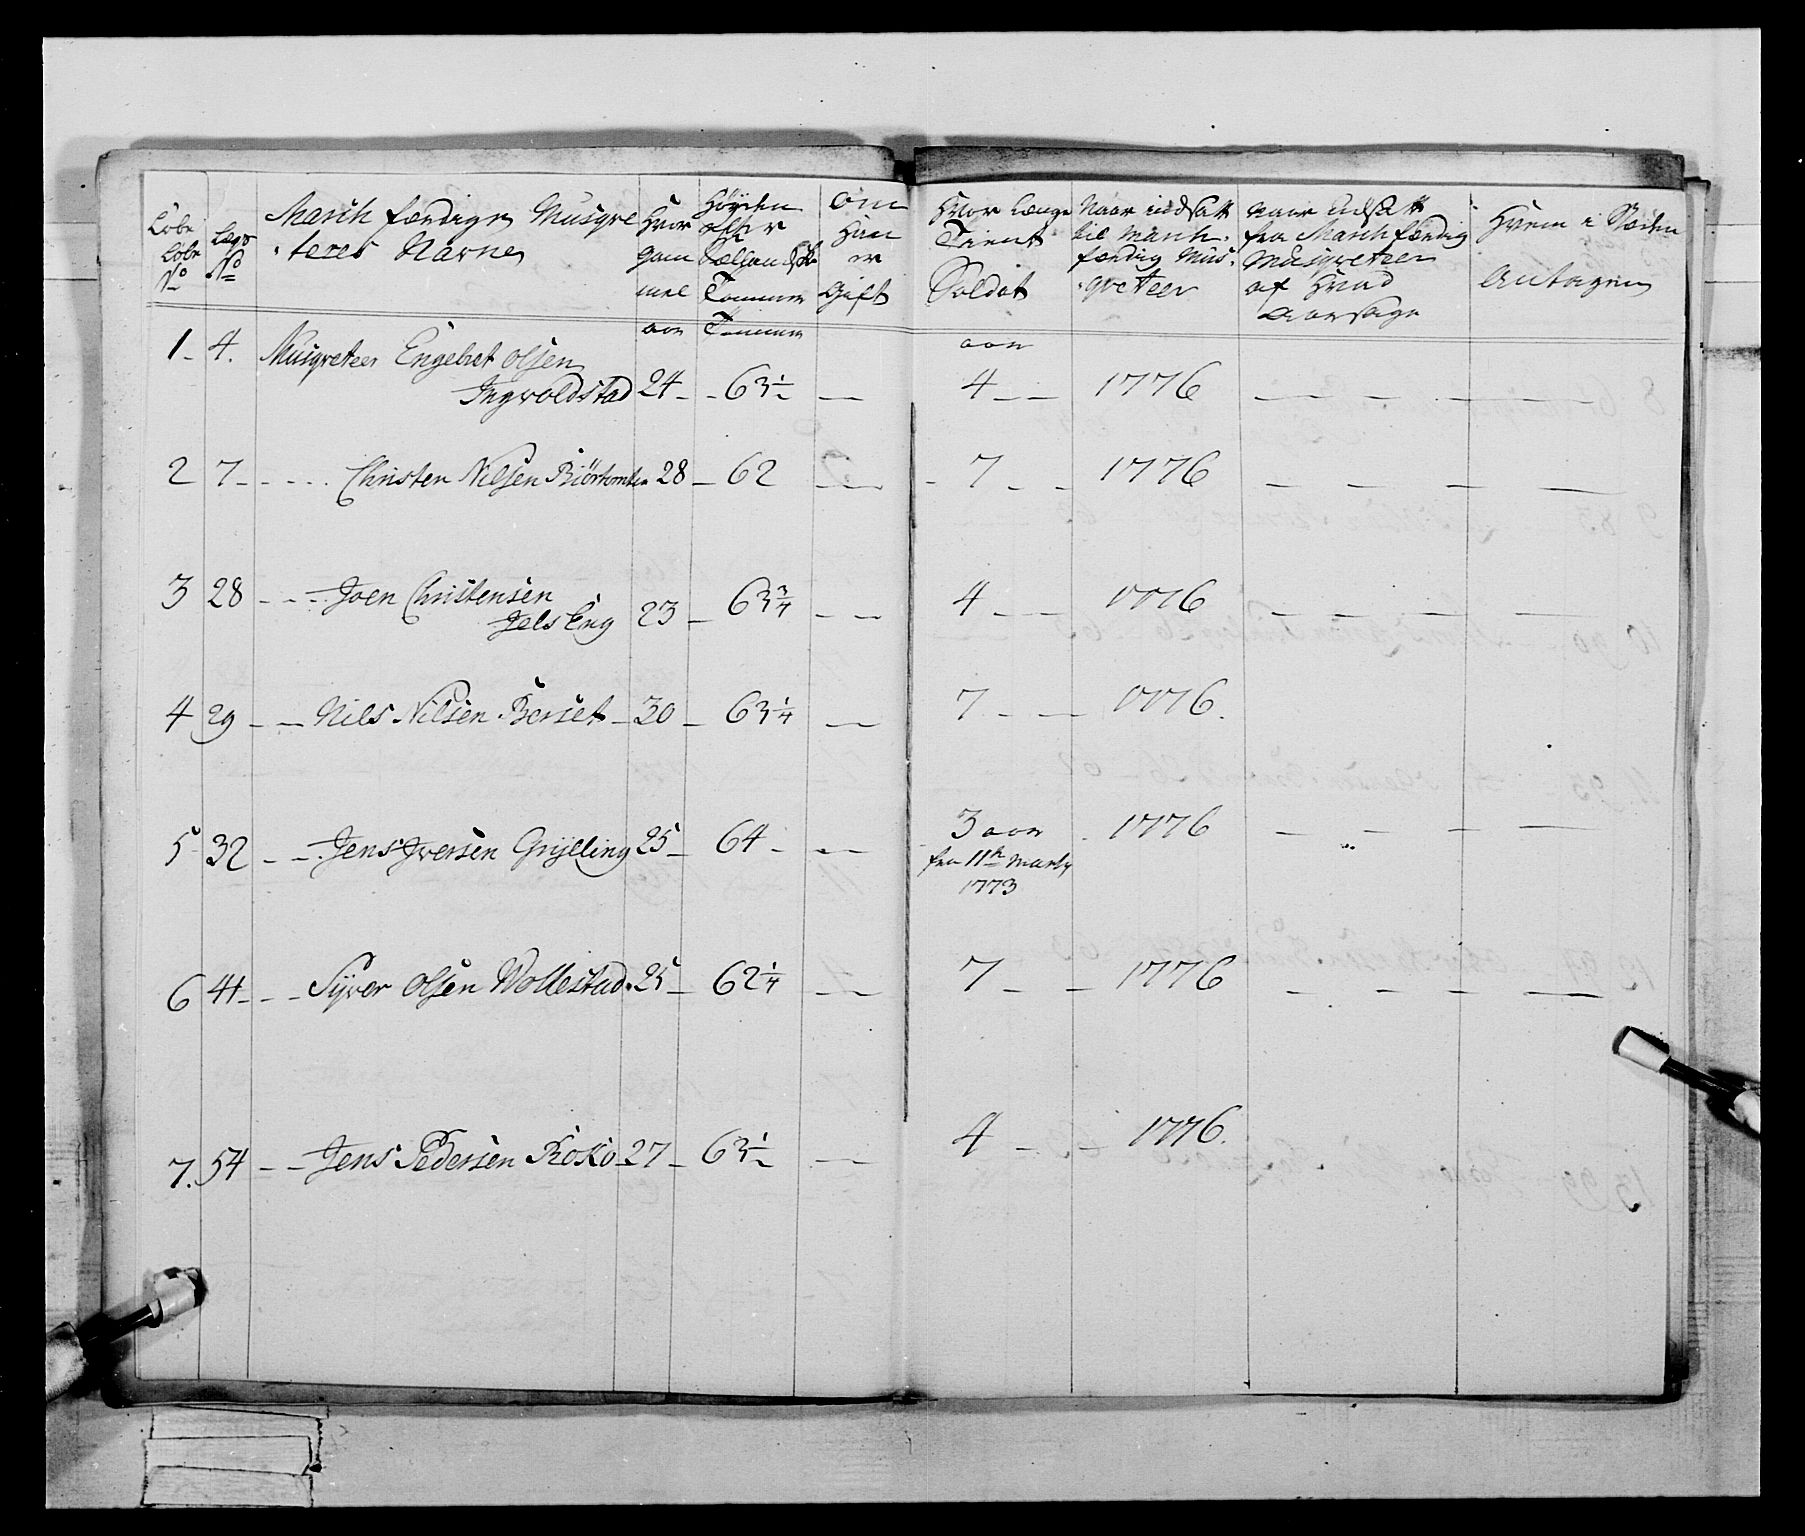 Löbe Löbe No
Legs No
March færdige Musqve
terers Navne
Hvor gam mel
Höyden efter Sællandske Tommer
om Han er Gift
Hvor Længe Tient Soldat
Naar indsatt til March færdig Musqveteer
naar udsatt fra March færdig Musqveteer af Hvad Aarsage
Hvem i Steden Antagen
aar Tommer aar
1 4. Musqveteer Engebret Olsen
Ingvoldstad 24 63½ 4 1776
2 7 Christen Nilsen 28 62 7 1776
3 28 Joen Christensen
Jels Eng 23 63¾ 4 1776
4 29 Nils Nilsen Berset 30 63¼ 7 1776.
5 32 Jens Iversen Grylling 25 64 3 aar 1776
fra 11te Marty
1773
6 41 Syver Olsen Wollestad 25 62¼ 7 1776
7. 54 Jens Pedersen Roko 27 63½ 4 1776.